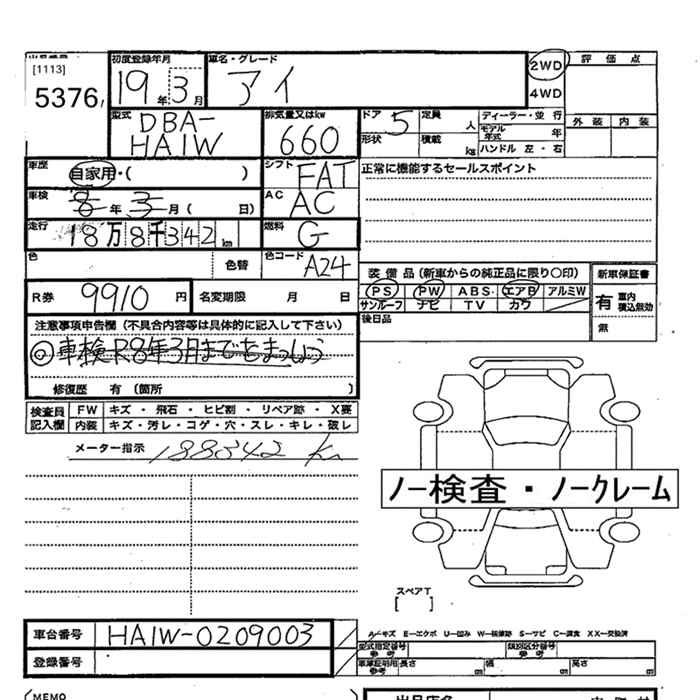 出品番号
[1113]
5376,
初度登録年月
19年3月
車名・グレード
アイ
2WD
4WD
評価点
外装 内装
型式
DBA-
HA1W
排気量又はkw
660
ドア 5
形状
定員 人
積載 kg
ディーラー・並行
モデル年式 年
ハンドル 左・右
車歴
自家用・( )
シフト FAT
正常に機能するセールスポイント
車検
8年3月( 日)
AC AC
走行
18万8千342km
燃料 G
色
色替
色コード A24
装備品(新車からの純正品に限り○印)
PS PW ABS エアB アルミW
サンルーフ ナビ TV カワ
新車保証書
有 車内積込無効
無
R券 9910円
名変期限 月 日
後日品
注意事項申告欄(不具合内容等は具体的に記入して下さい)
◎車検R8年3月まで
修復歴 有(箇所 )
検査員記入欄
FW キズ・飛石・ヒビ割・リペア跡・X要
内装 キズ・汚レ・コゲ・穴・スレ・キレ・破レ
メーター指示 188342 Km
ノー検査・ノークレーム
スペアT
[ ]
車台番号 HA1W-0209003
登録番号
A-キズ E-エクボ U-凹み W-補修跡 S-サビ C-腐食 XX-交換済
型式指定番号 参考
類別区分番号 参考
車庫証明用 参考
長さ cm 幅 cm 高さ cm
MEMO
出品店名